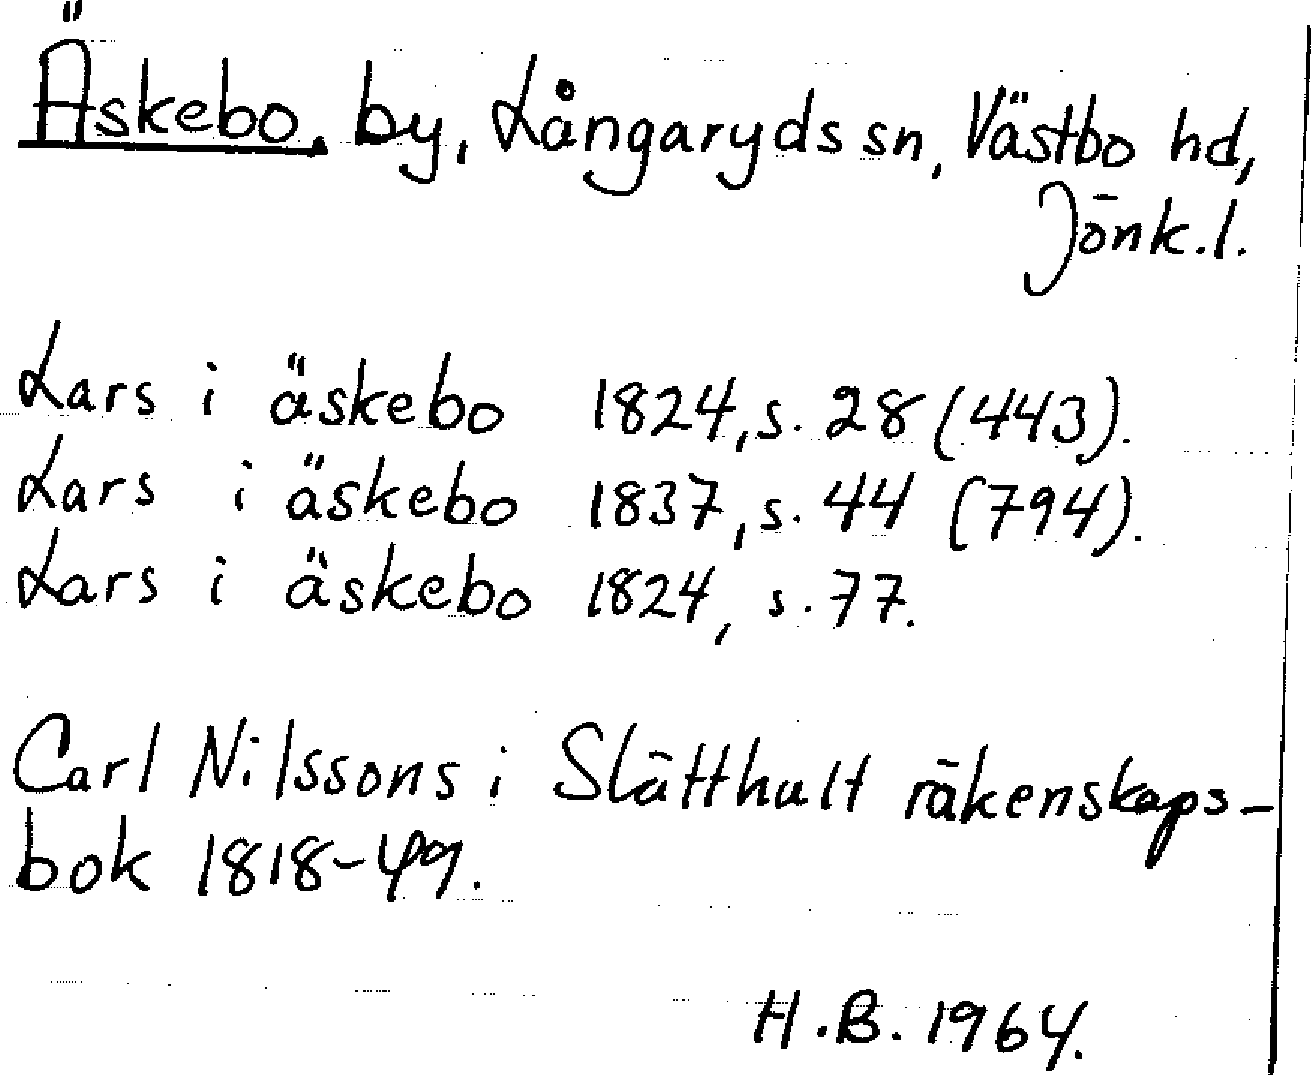 Äskebo, by, Långaryds sn, Västbo hd,
Jönk.l.
Lars i äskebo 1824, s. 28 (443).
Lars i äskebo 1837, s. 44 (794).
Lars i äskebo 1824, s. 77.
Carl Nilssons i Slätthult räkenskaps-
bok 1818-49.
H.B. 1964.